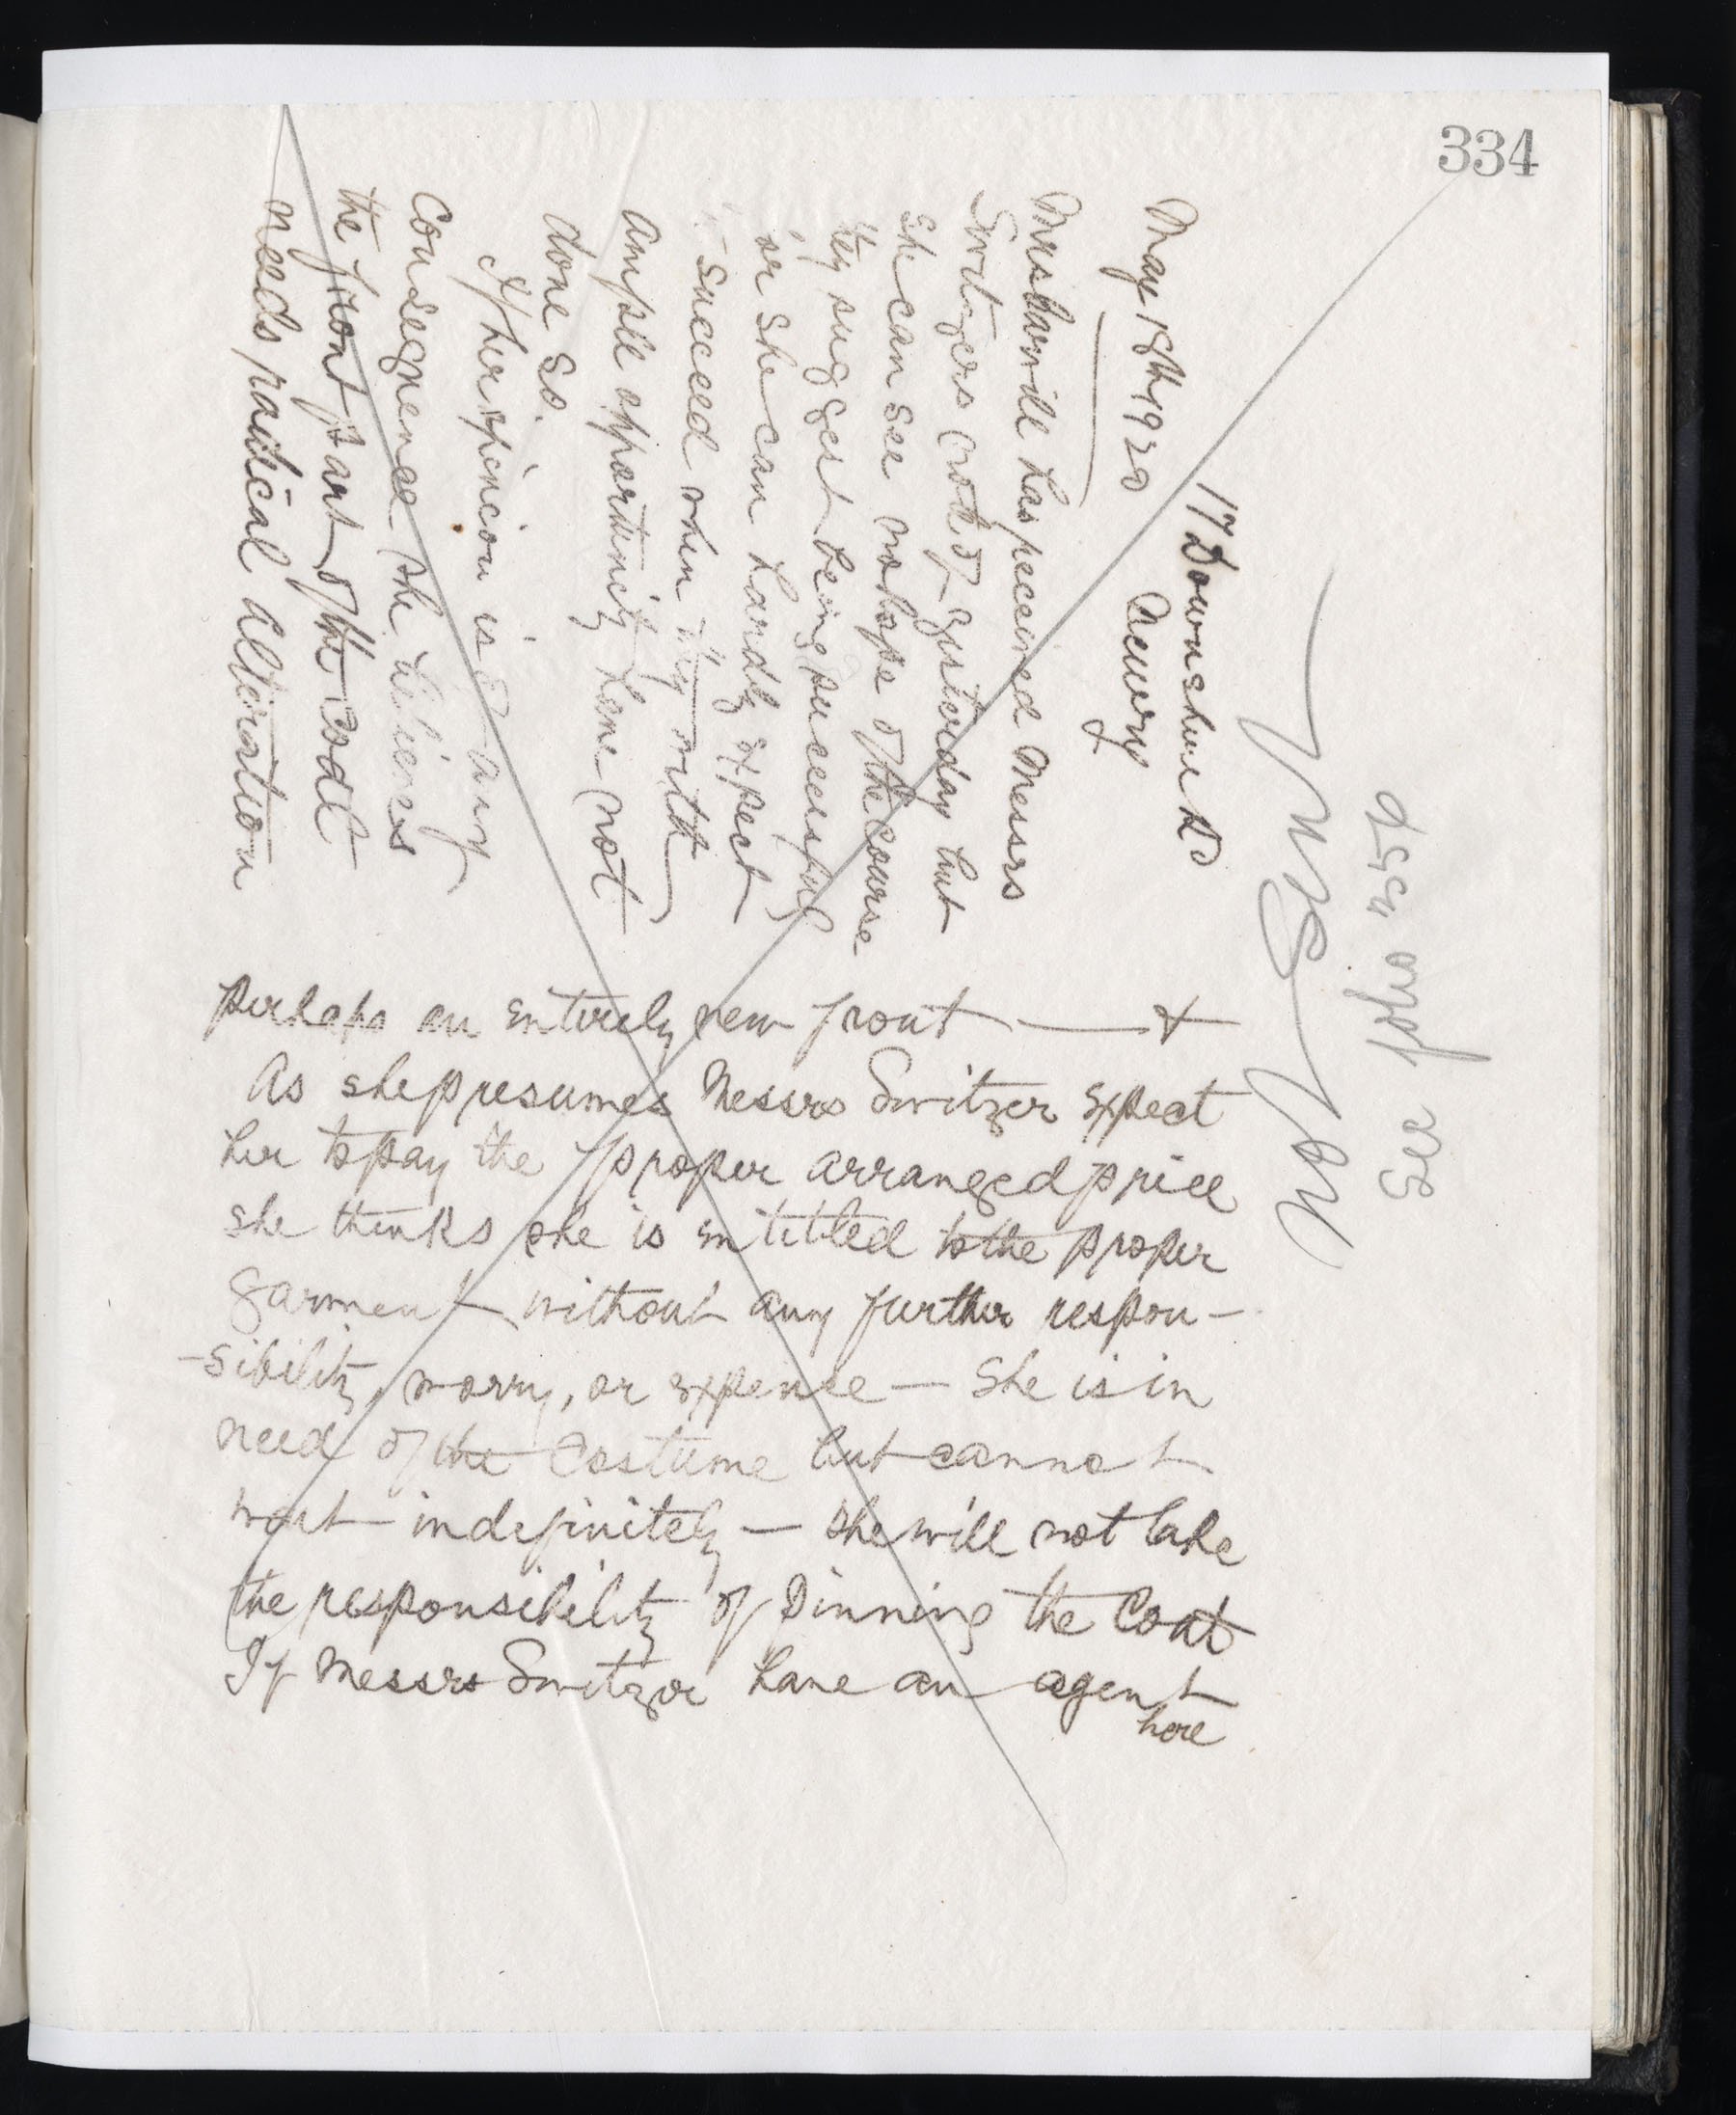 334
17 Downshire Rd
Newry
May 18th 1920
Mrs Barville has received Messrs
Switzers note of yesterday but
she can see no hope of the course
they suggest being successful
or she can hardly expect
it succeed when they with
ample opportunity have not
done so.
If her opinion is of any
consequence she believes
the front part of the coat
needs radical alteration
perhaps an entirely new front
As she presumes Messrs Switzer expect
her to pay the proper arranged price
she thinks she is entitled to the proper
garment without any further respon-
-sibility, worry, or expense — She is in
need of the Costume but cannot
wait indefinitely — she will not take
the responsibility of pinning the Coat
If Messrs Switzer have an agent
here
See folio